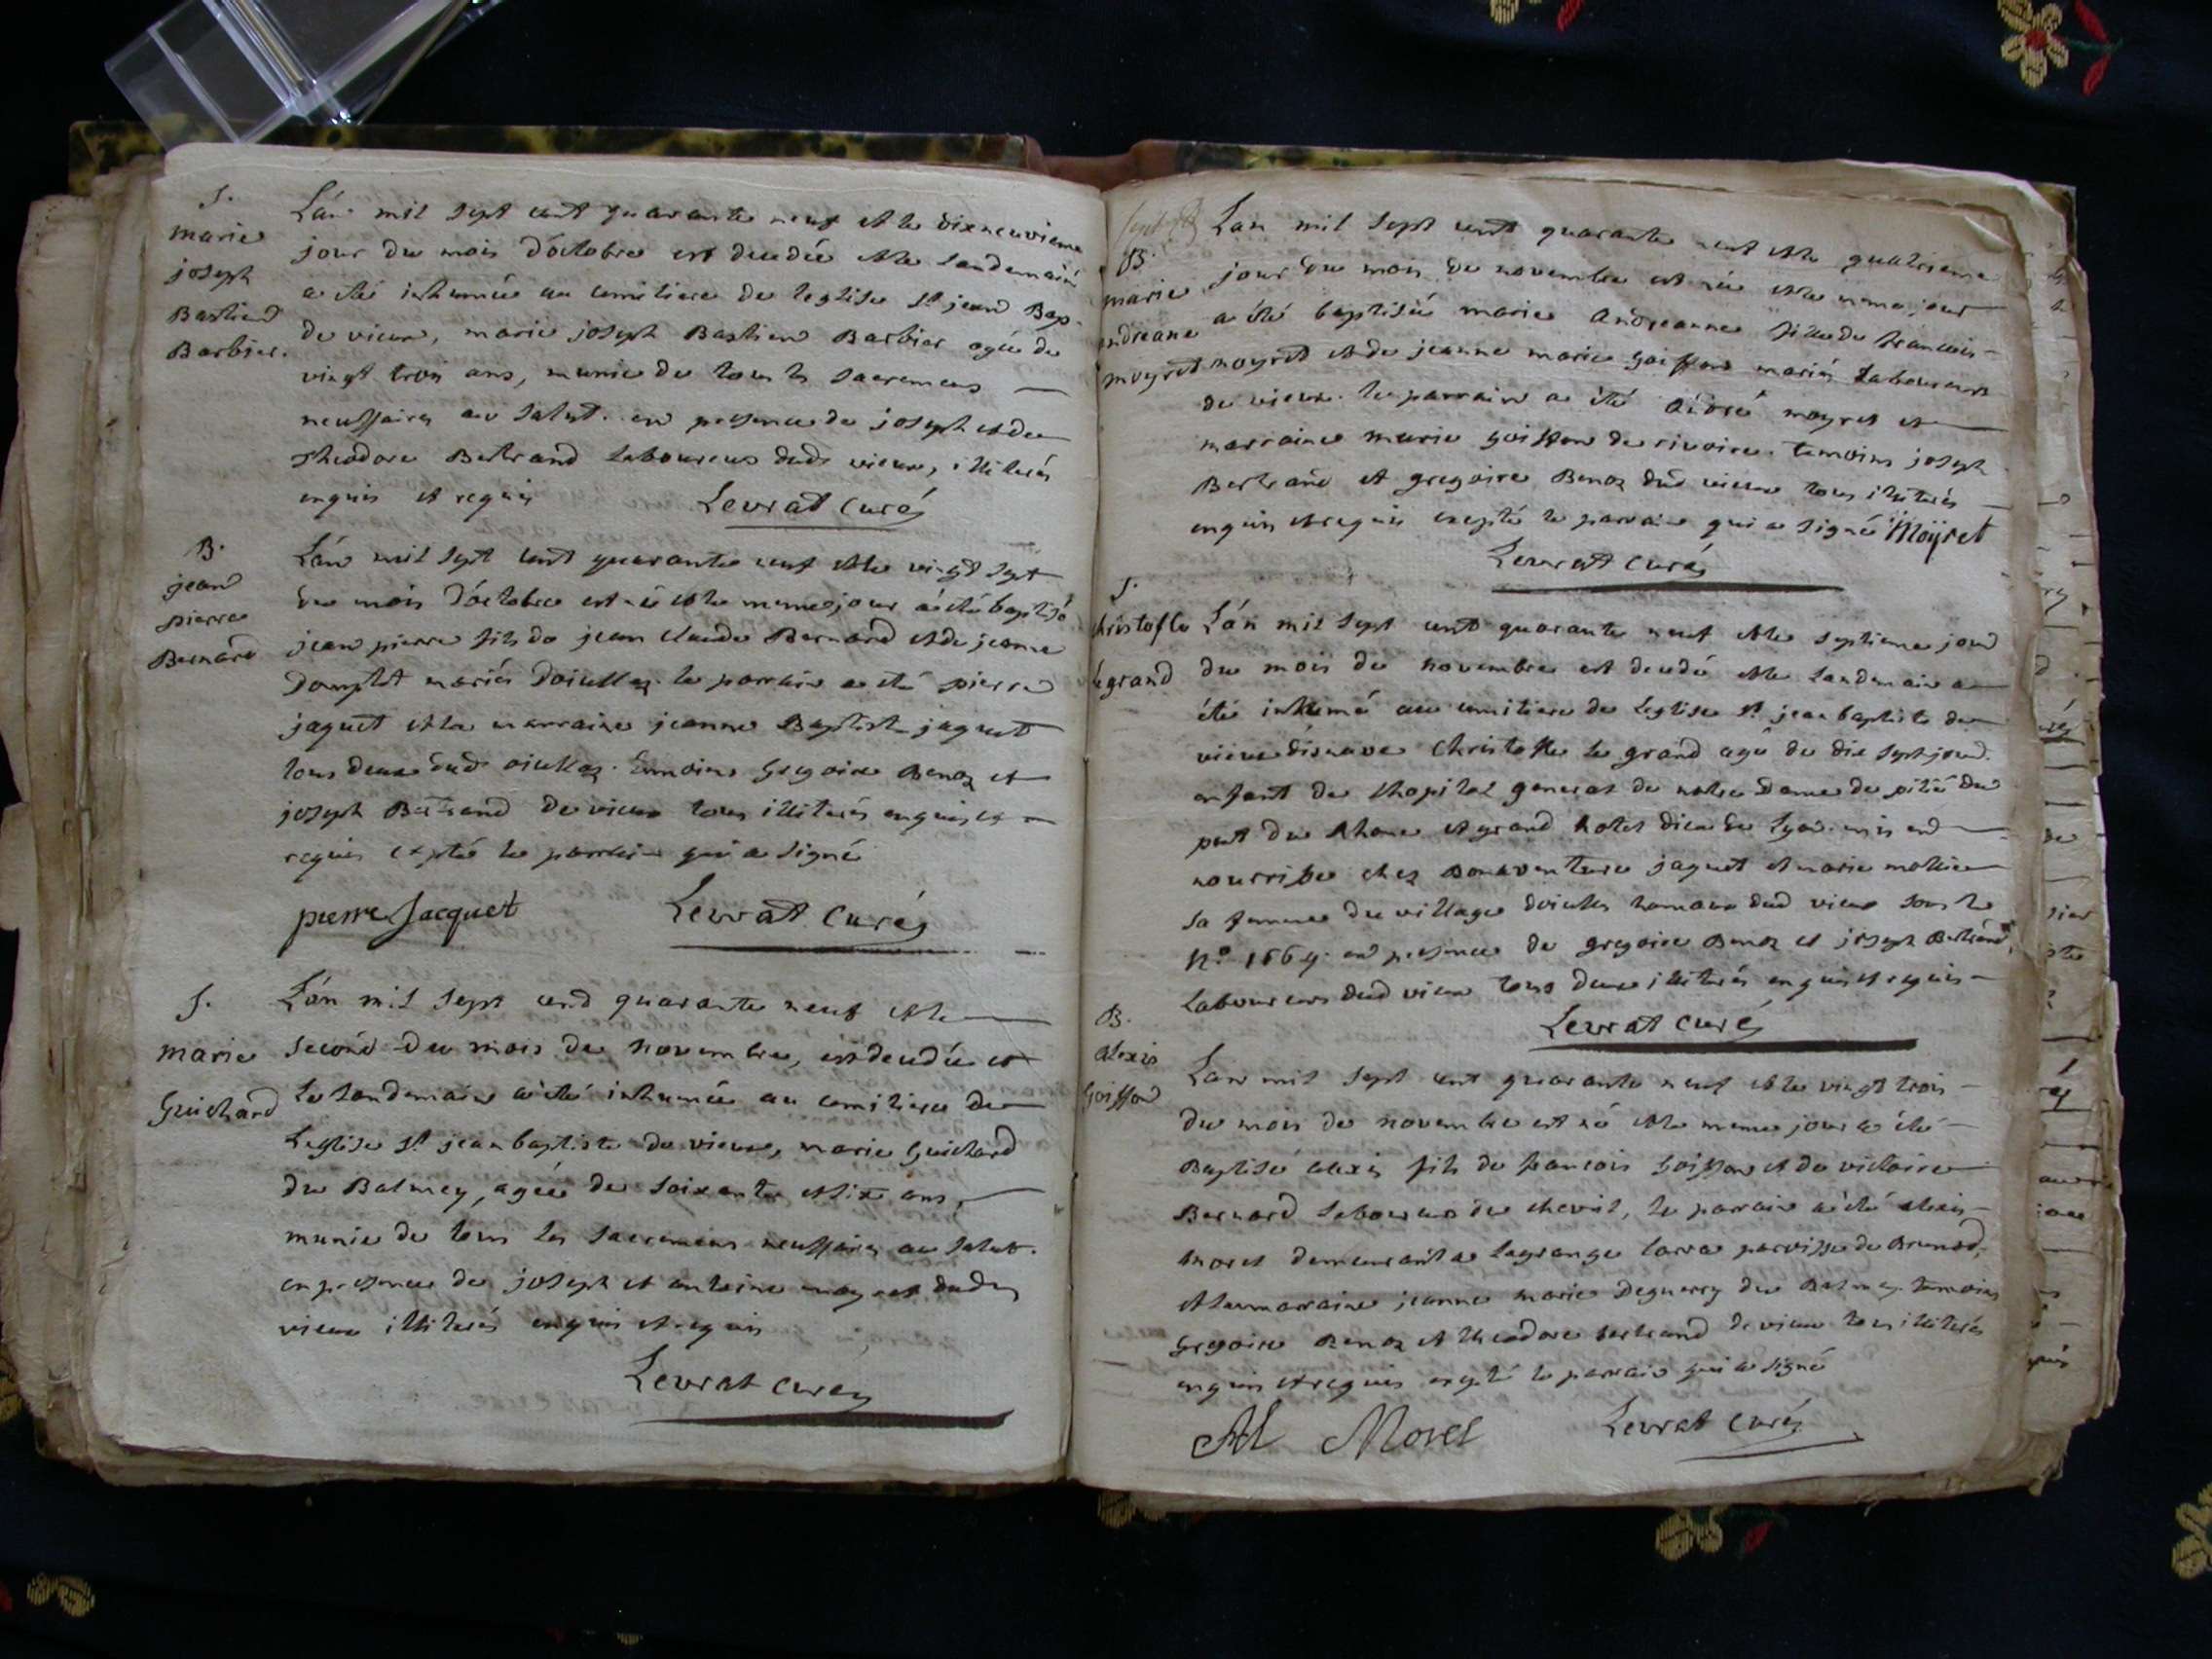 S.
marie
joseph
Bastiend
Barbier.
Lán mil sept cent quarante neuf et le dixneuvieme
jour du mois d'octobre est decedée et le landemain
a eté inhumée au cemitiere de leglise st jean Bap.
de vieux, marie joseph Bastien Barbier agée de
vingt trois ans, munie de tous les sacremens
necessaires au salut. en presence de joseph et de
theodore Bertrand laboureurs dud vieux, illiterés
enquis et requis
Levrat curé
B.
jean
pierre
Bernard
Lán mil sept cent quarante neuf et le vingt sept
du mois d'octobre est né et le meme jour a été baptisé
jean pierre fils de jean claude Bernard et de jeanne
mariés le parrain a eté pierre
jaquet et la marraine jeanne Baptiste jaquet
tous deux dud temoins Gregoire Benoz et
joseph Bertrand de vieux tous illiterés enquis et
requis exepté le parrain qui a signé
pierre Jacquet
Levrat curé
S.
marie
Guichard
Lán mil sept cend quarante neuf et le
second du mois de novembre, est decedée et
le landemain a eté inhumée au cemitiere de
leglise st jean baptiste de vieux, marie Guichard
du Balmey, agée de soixante et dix ans,
munie de tous les sacremens necessaires au salut.
en presence de joseph et antoine moyret dudy
vieux illiterés enquis et requis
Levrat curé
B.
marie
andreane
moyret
Lan mil sept cent quarante neuf et le quatrieme
jour du mois de novembre est née et le meme jour
a été baptisée marie Andreanne fille de francois
moyret et de jeanne marie goiffon mariés laboureurs
de vieux. le parrain a été moyret et
marraine marie goiffon de rivoire. temoins joseph
Bertrand et gregoire Benoz dud vieux tous illiterés
enquis et requis exepté le parrain qui a signé Moÿret
Levrat curé
S.
christofle
legrand
Lán mil sept cent quarante neuf et le septieme jour
du mois de novembre est decedé et le landemain a
été inhumé au cemitiere de leglise st jean baptiste de
vieux christofle le grand agé de dix sept jours
enfant de lhopital general de notre Dame de pitié du
pont du Rhone et grand hotel dieu de lyon mis en
nourrisse chez Bonaventure jaquet et marie
sa femme du village hameau dud vieux sous le
N° en presence de gregoire Benoz et joseph Bertrand,
laboureurs dud vieux tous deux illiterés enquis et requis
Levrat curé
B.
alexis
Goiffon
Lan mil sept cent quarante neuf et le vingt trois
du mois de novembre est né et le meme jour a été
Baptisé alexis fils de francois Goiffon et de victoire
Bernard laboureurs du chevril, le parrain a été alexis
moret demeurant a lagrange parroisse de Brenod,
et la marraine jeanne marie Deguerry du Balmey temoins
Gregoire Benoz et theodore bertrand de vieux tous illiterés
enquis et requis exepté le parrain qui a signé
Al Moret
Levrat curé